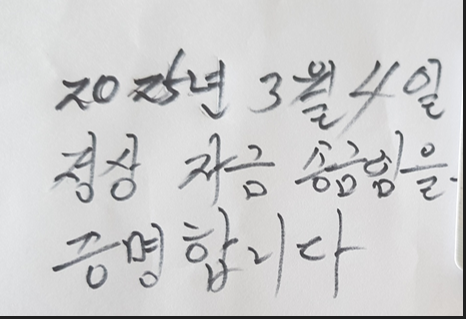 2025년 3월 4일
정상 자금 송금임을
증명합니다